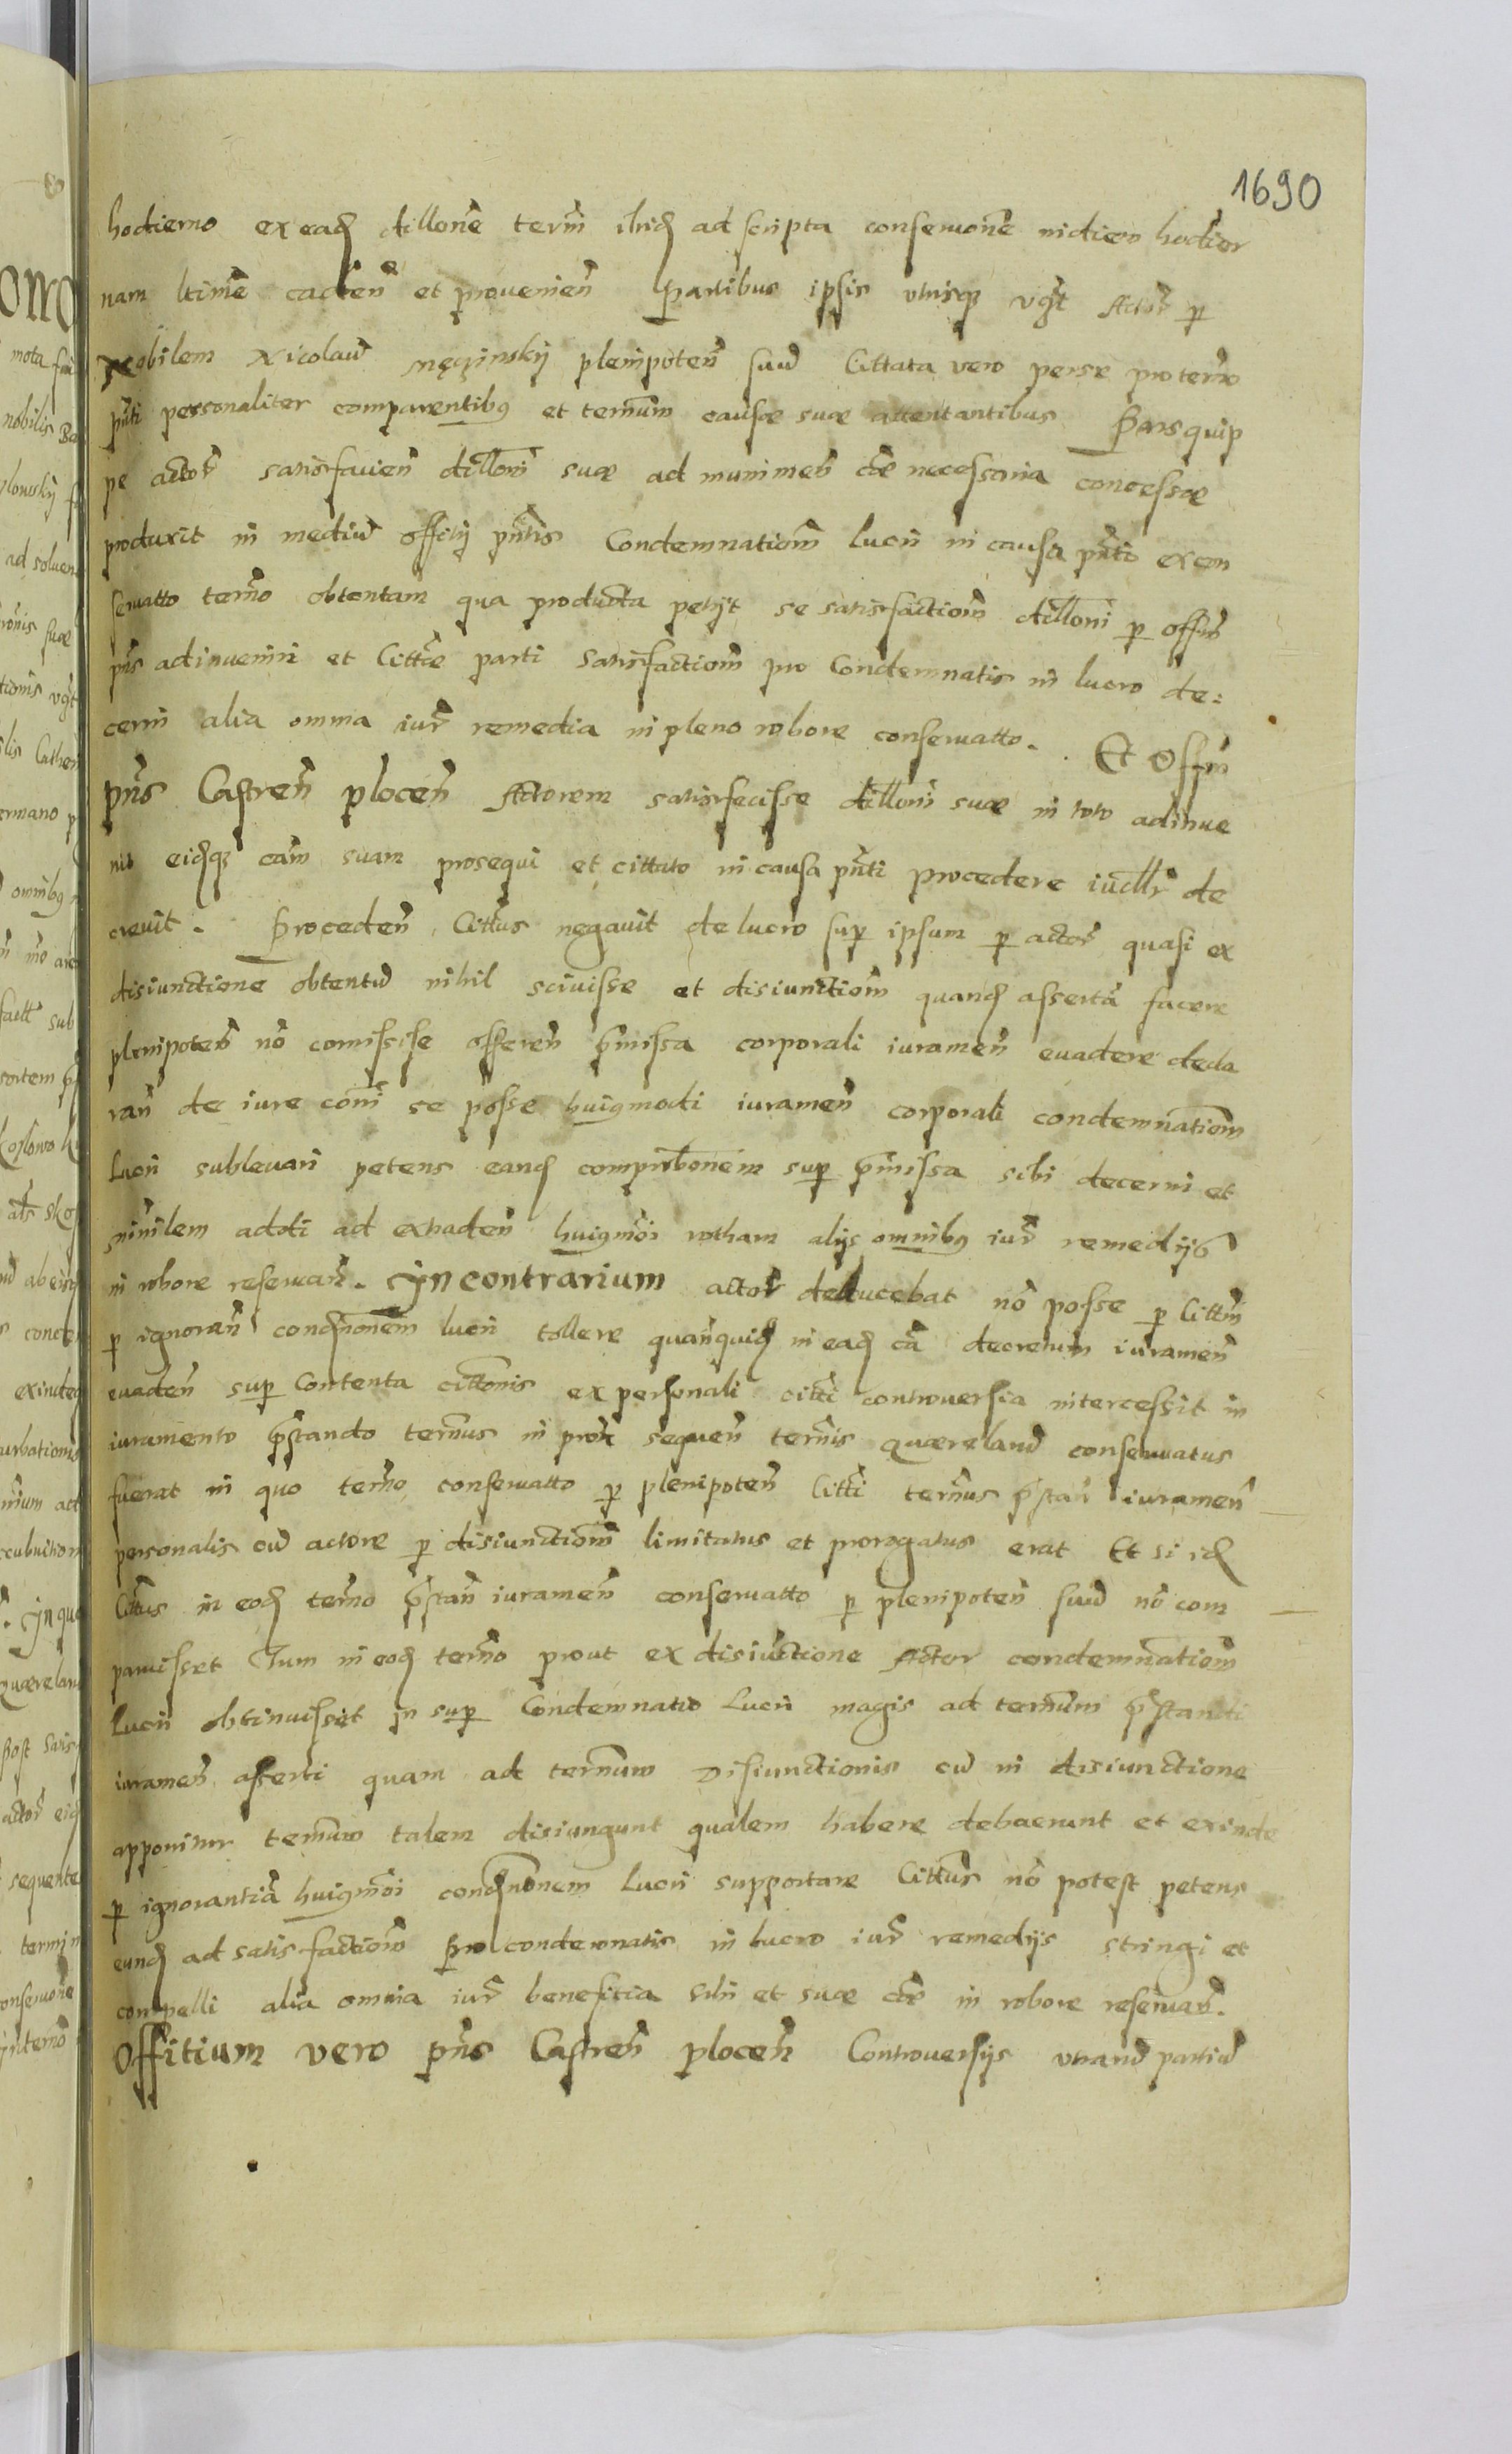 1690
hodierno ex eadẽ dillone term ibidẽ ad scripta conservone in diem hodier
nam ltime caden et provenien Partibus ipsis utrisq vgt Actor p
Nobilem Nicolaũ plenipoten suũ Cittata vero per se pro termo
pnti personaliter comparentibq et termum causæ suæ attentantibus Pars quip
pe actor satisfacien dilloni suæ ad munimen cæ necessaria concessæ
produxit in mediũ offitij pntis Condemnationẽ lucri in causa pnti ex con
servatto termo obtentam qua producta petijt se satisfactiom dilloni p offm
pns adinveniri et Cittæ parti Satisfactiom pro Condemnatis in lucro de:
cerni alia omnia iur remedia in pleno robore conservatto. Et Offm
pns Castren plocen Actorem satisfecisse dilloni suæ in toto adinve
nit eidq cam suam prosequi et cittato in causa pnti procedere iudllr de
crevit. Proceden Cittus negavit de lucro sup ipsum p actor quasi ex
disiunctione obtentũ nihil scivisse et disiunctiom quandẽ assertã facere
plenipoten nõ comisisse offeren pmissa corporali iuramen evadere decla
ran de iure comi se posse huiqmodi iuramen corporali condemnatiom
lucri sublevari petens eandẽ comprobonem sup pmissa sibi decerni et
similem addi ad evaden huiqmoi rotham alijs omnibq iur remedijs
in robore reservan. In contrarium actor deducebat nõ posse p Cittm
p ignoran condnonem lucri tollere quanquidẽ in eadẽ cã decretum iuramen
evaden sup Contenta cittonis ex personali citti controversia intercessit in
iuramento pstando termus in prox sequen termis quærelarũ conservatus
fuerat in quo termo conservatto p plenipoten Citti termus pstan iuramen
personalis cũ actore p disiunctiom limitatus et prorogatus erat Et si idẽ
Cittus in eodẽ termo pstan iuramen conservatto p plenipoten suũ nõ com
paruisset Tum in eodẽ termo prout ex disiũctione Actor condemnatiom
lucri obtinuisset in sup Condemnatio lucri magis ad termum pstandi
iuramen asserti quam ad termum Disiunctionis cũ in disiunctione
apponitur termum talem disiungunt qualem habere debuerunt et exinde
p ignorantiã huiqmoi condnonem lucri supportare Cittus nõ potest petens
eundẽ ad satisfactiom pro condemnatis in lucro iur remedijs stringi et
compelli alia omnia iur benefitia sibi et suæ cæ in robore reservan.
Offitium vero pns Castren plocen Controversijs utrarũ partiũ